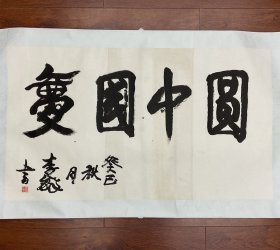 圓中國夢
癸巳
秋
月